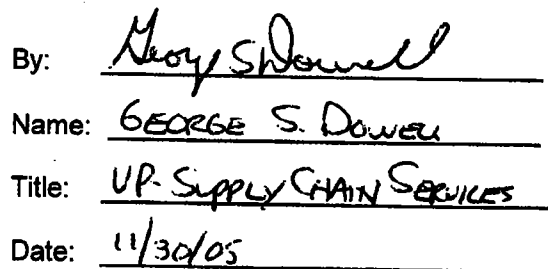 By: George S Dowell
Name: GEORGE S. DOWELL
Title: VP- SUPPLY CHAIN SERVICES
Date: 11/30/05